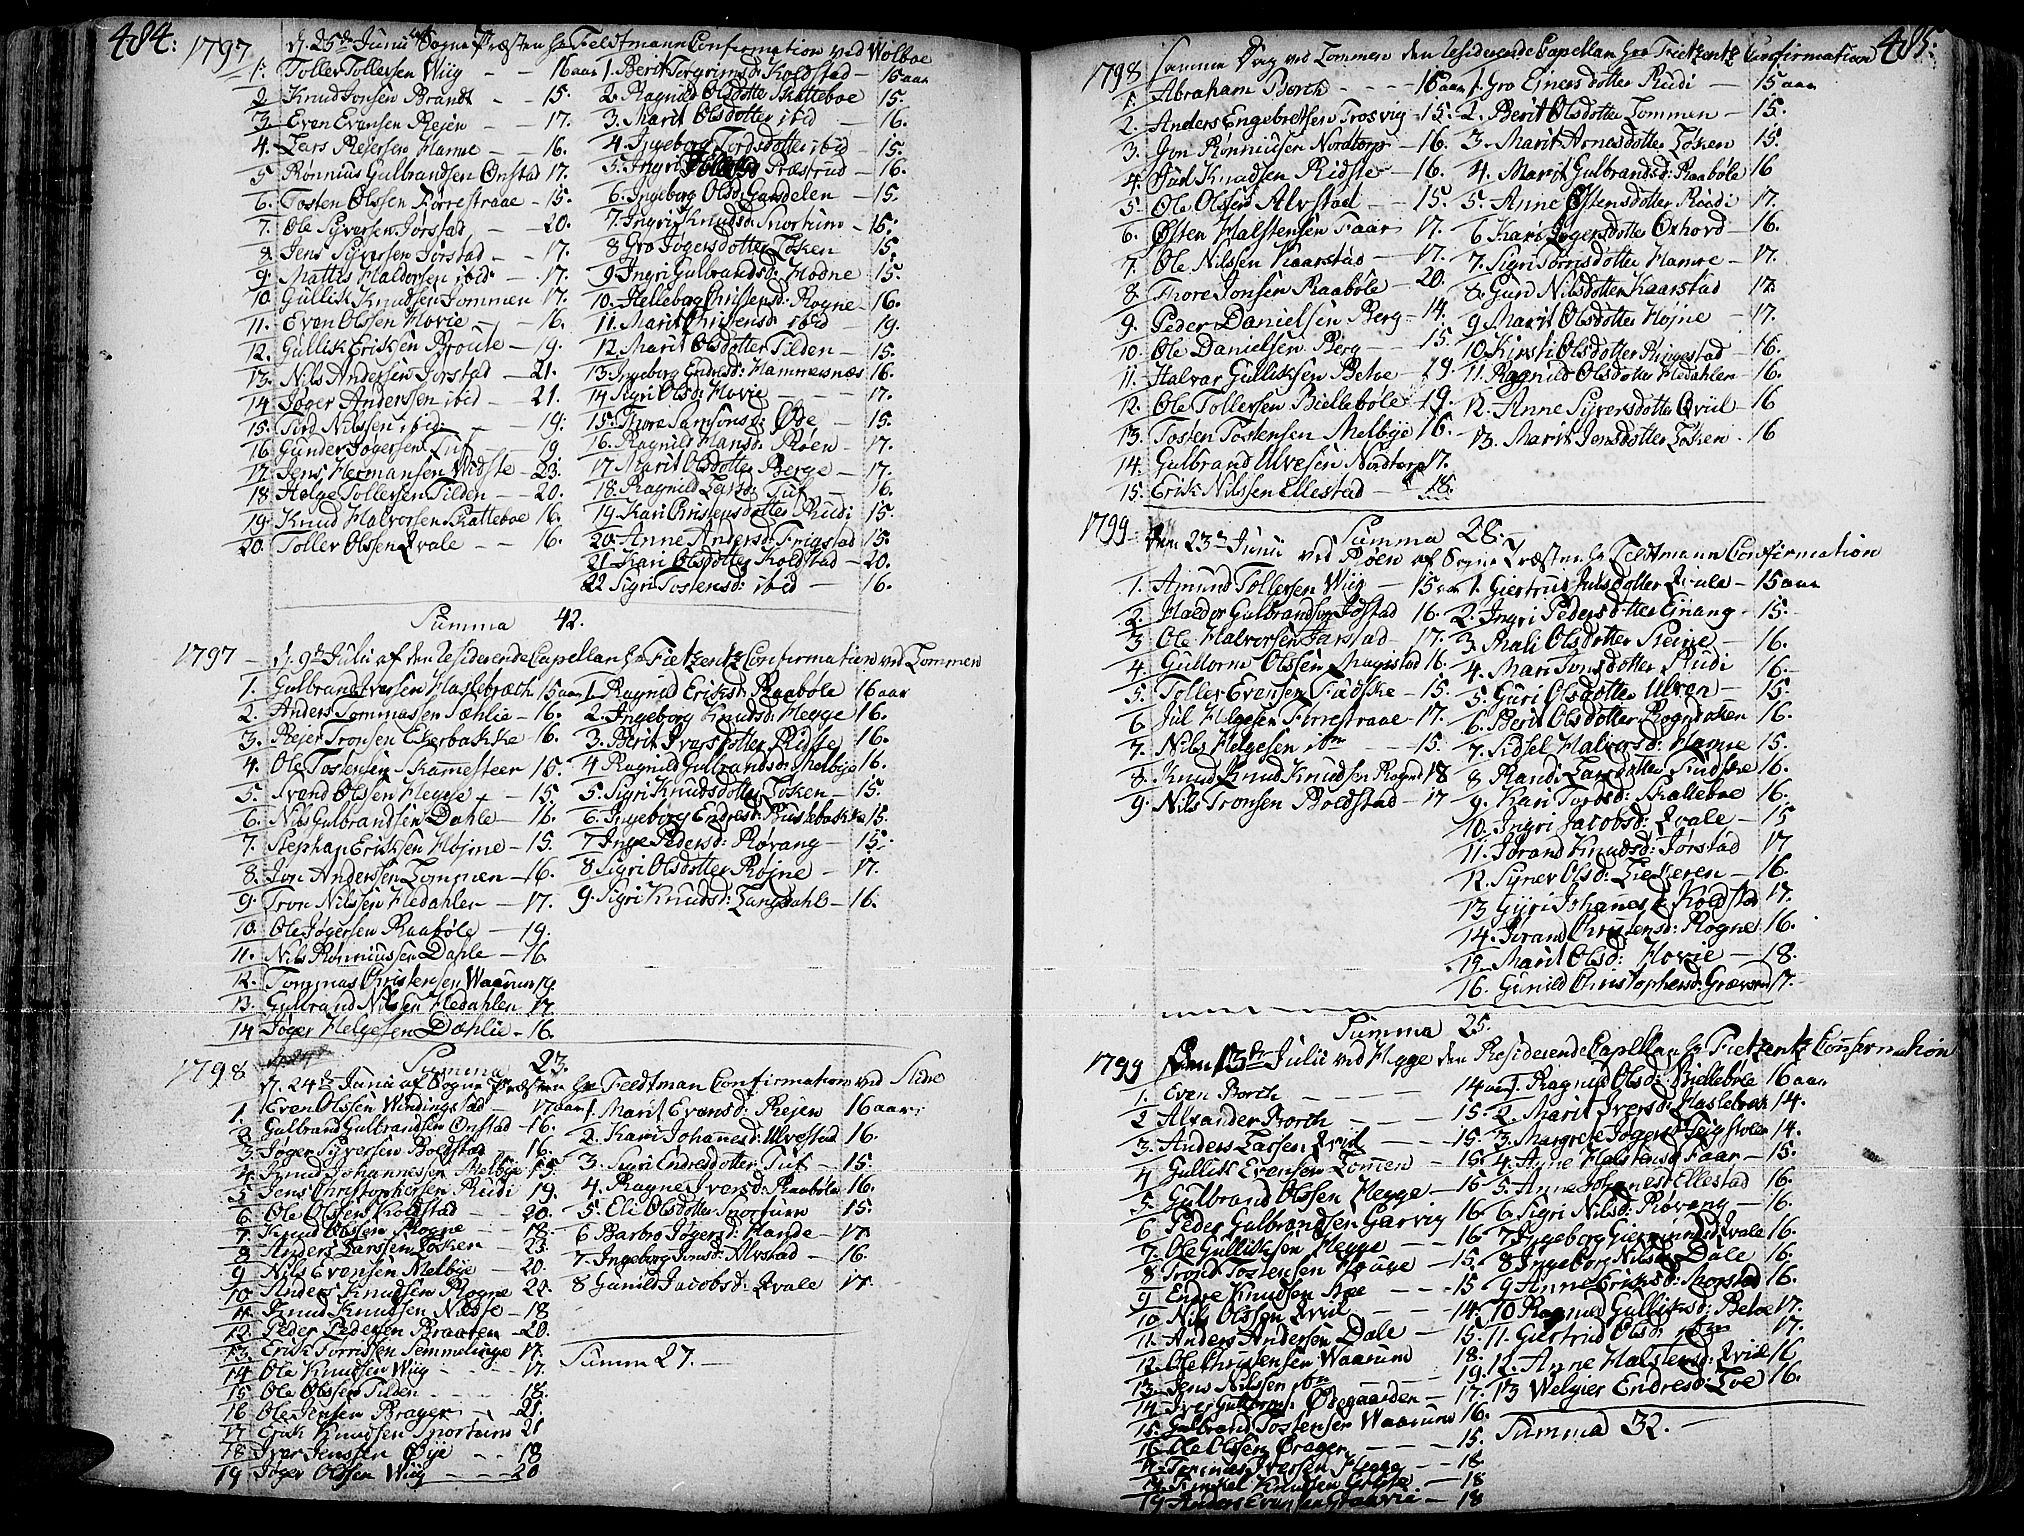 484:
1797 d. 25de Junii af Sogne Præsten Hr Feldtmann Confirmation ved Wolboe
1. Toller Tollersen Wiig - - 16 aar
2. Knud Jonsen Brandt - - 15.
3. Even Evensen Rejen - - 17.
4. Lars Rejersen Hamre - 16.
5. Rønnius Gulbrandsen Onstad 17.
6. Tosten Olssen Førrestraae - 15.
7. Ole Syversen Jørstad - 20.
8. Jens Syversen Jørstad - 17.
9. Mattis Haldorsen ibid - 17.
10. Gullik Knudsen Lommen 17.
11. Even Olssen Hovie - 16.
12. Gullik Eriksen Broute - 19.
13. Nils Andersen Jørstad - 21.
14. Jøger Andersen ibid - 21.
15. Tord Nilssen ibid - 19.
16. Gunder Jøgersen Tuf - 19
17. Jens Hermansen Widste - 23.
18. Helge Tollersen Tilden - 20.
19. Knud Halvorsen Skatteboe 16.
20. Toller Olssen Qvale - - 16.
1. Berit Torgrimsd: Koldstad - 15 aar
2. Ragnild Olsdotter Skatteboe 15.
3. Marit Olsdotter ibid - 16.
4. Ingeborg Tordsdotter ibid - 15.
5. Ingri Præstrud - 16.
6. Ingeborg Olsd: Garsdelen - 15.
7. Ingri Knudsd: Snortum - 15.
8. Gro Jøgersdotter Løken 15.
9. Ingri Gulbrandsd: Hodne 15.
10. Helleborg Chrissensd: Rogne - 16.
11. Marit Chrissensd: ibid - 19.
12. Marit Olsdotter Tilden - 15.
13. Ingeborg Endresd: Hammersnæs 16.
14. Sigri Olsd: Hovie - 17.
15. Thore Samsonsd: Øde - 15.
16. Ragnild Hansd: Røen - 17.
17. Marit Olsdotter Berge - 17.
18. Ragnild Larsd: Tuf - 16.
19. Kari Christensdotter Rudi 15.
20. Anne Andersd: Frigstad 15.
21. Kari Olsdotter Koldstad - 20.
22. Sigri Tostensd: ibid - 16.
Summa 42.
1797 - d. 9de Julii af den residerende Capellan Hr Fietzentz Confirmation ved Lommen
1. Gulbrand Iversen Haslebræth 15 aar
2. Anders Tommassen Dæhlie - 16.
3. Rejer Tronsen Ekerbakke 16.
4. Ole Tostensen Skamesteer 15.
5. Svend Olsen Hegge - 15
6. Nils Gulbrandsen Dahle - 16.
7. Stephan Eriksen Højme - 15.
8. Jon Andersen Lommen - 16.
9. Tron Nilssen Hedahlen - 17.
10. Ole Jøgersen Raabøle - 19.
11. Nils Rønniussen Dahle - 16
12. Tommas Christensen Waarum 19.
13. Gulbrand Nilssen Hedahlen 17.
14. Jøger Helgesen Dæhlie - 16.
1. Ragnild Eriksd: Raabøle 16 aar
2. Ingeborg Knudsd: Hegge 16.
3. Berit Iversdotter Ridste 16.
4. Ragnild Gulbrandsd: Melbye 16.
5. Sigri Knudsdotter Løken - 15.
6. Ingeborg Endresd: Buslebakke 15.
7. Inge Pedersd: Røvang - 15.
8. Sigri Olsdotter Højne - 17.
9. Sigri Knudsd: Langdahl - 16.
Summa 23.
1798 d. 24de Junii af Sogne Præsten Hr Feldtman Confirmation ved Slidre
1. Even Olssen Windingstad - 17 aar
2. Gulbrand Gulbrandsen Onstad - 16.
3. Jøger Syversen Boldstad - 16.
4. Knud Johannessen Melbye 15
5. Jens Christophersen Rudi 19.
6. Ole Olssen Koldstad - 20.
7. Knud Olssen Rogne - 18.
8. Anders Larssen Løken - 23.
9. Nils Evensen Melbye - 20.
10. Anders Knudsen Rogne 22.
11. Knud Knudsen Nedste - 18
12. Peder Pedersen Braaten - 20.
13. Erik Torrissen Semmelinge 17.
14. Ole Knudsen Wiig - 17.
15. Ole Olssen Tilden - 18.
16. Ole Jensen Brager - 21.
17. Erik Knudsen Snortum 21
18. Iver Jenssen Øye - 18
19. Jøger Olssen Wiig - 20
1. Marit Evensd: Rejen 16 aar
2. Kari Johannesd: Ulvestad 16.
3. Sigri Endresdotter Tuf - 15.
4. Ragne Iversd: Raabøle 16.
5. Eli Olsdotter Snortum 15.
6. Barbro Jøgersd: Hande - 17
7. Ingeborg Jensd: Alvstad - 16.
8. Gunild Jacobsd: Qvale 17.
Summa 27.
485:
1798 Samme Dag ved Lommen den residerende Capellan Hr Fietzentz Confirmation
1. Abraham Borch - - 16 aar
2. Anders Engebretsen Trosvig - 15.
3. Jon Rønniusen Nordtorp - 16.
4. Juul Knudsen Ridste - 16.
5. Ole Olssen Alvstad - 15.
6. Østen Halstensen Faar 17.
7. Ole Nilssen Kaarstad - 17.
8. Thore Jonsen Raabøle - 20.
9. Peder Danielsen Berg - 14.
10. Ole Danielsen Berg - 15.
11. Halvar Gulliksen Beloe - 19.
12. Ole Tollersen Biellebøle - 19.
13. Tosten Tostensen Melbye 16.
14. Gulbrand Ulvesen Nordtorp 17.
15. Erik Nilssen Ellestad - 18.
1. Gro Einersdotter Rudi - 15 aar
2. Berit Olsdotter Lommen - 15.
3. Marit Arnesdotter Løken 15
4. Marit Gulbrandsd: Raabøle 16
5. Anne Østensdotter Rudi 17.
6. Kari Jøgersdotter Oxhovd - 16.
7. Sigri Torrisdotter Hamre - 17.
8. Guri Nilsdotter Kaarstad 17.
9. Marit Olsdotter Højne - 17.
10. Kirsti Olsdotter Ringestad - 16.
11. Ragnild Olsdotter Hedahlen - 16.
12. Anne Syversdotter Qviil - 16
13. Marit Jensdotter Løken - 16
Summa 28.
1799 Den 23de Junii ved Røen af Sogne Præsten Hr Feldtmann Confirmation
1. Amund Tollersen Wiig - 15 aar
2. Haldor Gulbrandsen Jøstad 16.
3. Ole Halvorsen Jarstad - 17.
4. Guttorm Olssen Magistad 16.
5. Toller Evensen Fudske - 15.
6. Jul Helgesen Førrestraae - 17.
7. Nils Helgesen ibm - 15.
8. Knud Knudsen Rogne 18
9. Nils Tronsen Boldstad - 17
1. Giertrud Julsdotter Qvale - 15 aar
2. Ingri Pedersdotter Einang - 15.
3. Mali Olsdotter Steine - 16.
4. Mari Tordsdotter Rudi 16.
5. Guri Olsdotter Ulven - 15.
6. Berit Olsdotter Bogndoken 16.
7. Sidsel Halvorsd: Hamre 15.
8. Randi Larsdotter Fudske 16.
9. Kari Tordsd: Skatteboe 16.
10. Ingri Jacobsd: Qvale - 15
11. Jorand Knudsd: Jørstad 17
12. Synev Olsd: Liekeren - 16.
13. Gyri Johanesd: Koldstad 17.
14. Jorand Christensd: Rogne 16.
15. Marit Olsd: Hovie - 18.
16. Gunild Christophersd: Grævsrud 17.
Summa 25.
1799 Den 13de Julii ved Hegge den Residerende Capellan Hr Fietzentz Confirmation
1. Even Borch - - 14 aar
2. Alxander Borch - - 15.
3. Anders Larsen Qviil - - 15.
4. Gullik Evensen Lomen - 16.
5. Gulbrand Olssen Hegge - 16
6. Peder Gulbrandsen Garvig 16.
7. Ole Gulliksen Hegge - 16.
8. Trond Tostensen Houge - 15.
9. Endre Knudsen Moe - 15
10. Nils Olssen Qviil - 14.
11. Anders Andersen Dale - 15.
12. Ole Christensen Waarum 18.
13. Jens Nilssen ibm - 19.
14. Iver Guttorms: Ødegaarden - 17.
15. Gulbrand Tostensen Waarum 16.
16. Ole Olssen Brager - 15.
17. Tommas Iversen Hegge - 18
18. Knudsen - 18
19. Anders Evensen Gaarvie - 18
1. Ragnild Olsd: Biellebøle 16 aar
2. Marit Iversd: Haslebræk 14.
3. Margrete Jøgersd: Seigstolen 14.
4. Anne Halstensd: Faar - 15.
5. Anne Johanesd: Ellestad 16.
6. Sigri Nilsd: Røvang - 16.
7. Ingeborg Qvale 16.
8. Ingeborg Nilsd: Dale 16.
9. Anne Eriksd: Morstad 16.
10. Ragnild Gulliksd: Beloe 17.
11. Giertrud Olsd: ibm 17.
12. Anne Halstensd: Qviil 16
13. Welgier Endresd: Loe 16.
Summa 32.